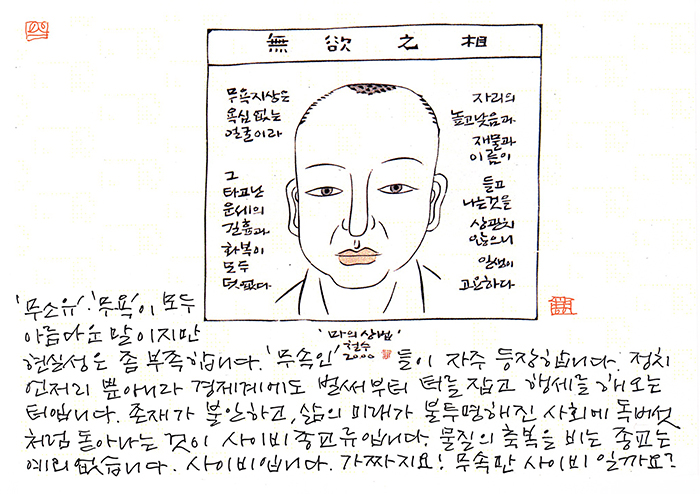 無欲之相
무욕지상은
욕심없는
얼굴이라
그
타고난
운세의
길흉과
화복이
모두
덧없다
자리의
높고낮음과
재물과
이름이
들고
나는것을
상관치
않으니
일생이
고요하다
'마의상법'
철수
2000
'무소유'·'무욕'이 모두
아름다운 말이지만
현실성은 좀 부족합니다. '무속인'들이 자주 등장합니다. 정치
언저리 뿐아니라 경제계에도 벌써부터 터를 잡고 행세를 해오는
터입니다. 존재가 불안하고, 삶의 미래가 불투명해진 사회에 독버섯
처럼 돋아나는 것이 사이비종교류입니다. 물질의 축복을 비는 종교는
예외없습니다. 사이비입니다. 가짜지요! 무속만 사이비 일까요?